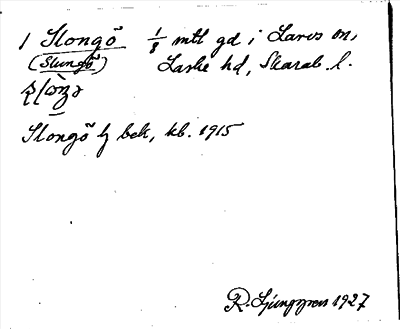 1 Slongö 1/8 mtl gd i Larvs sn,
(Slungö) Laske hd, Skarab. l.
Slongö h bek, kb. 1915
R. Ljunggren 1927